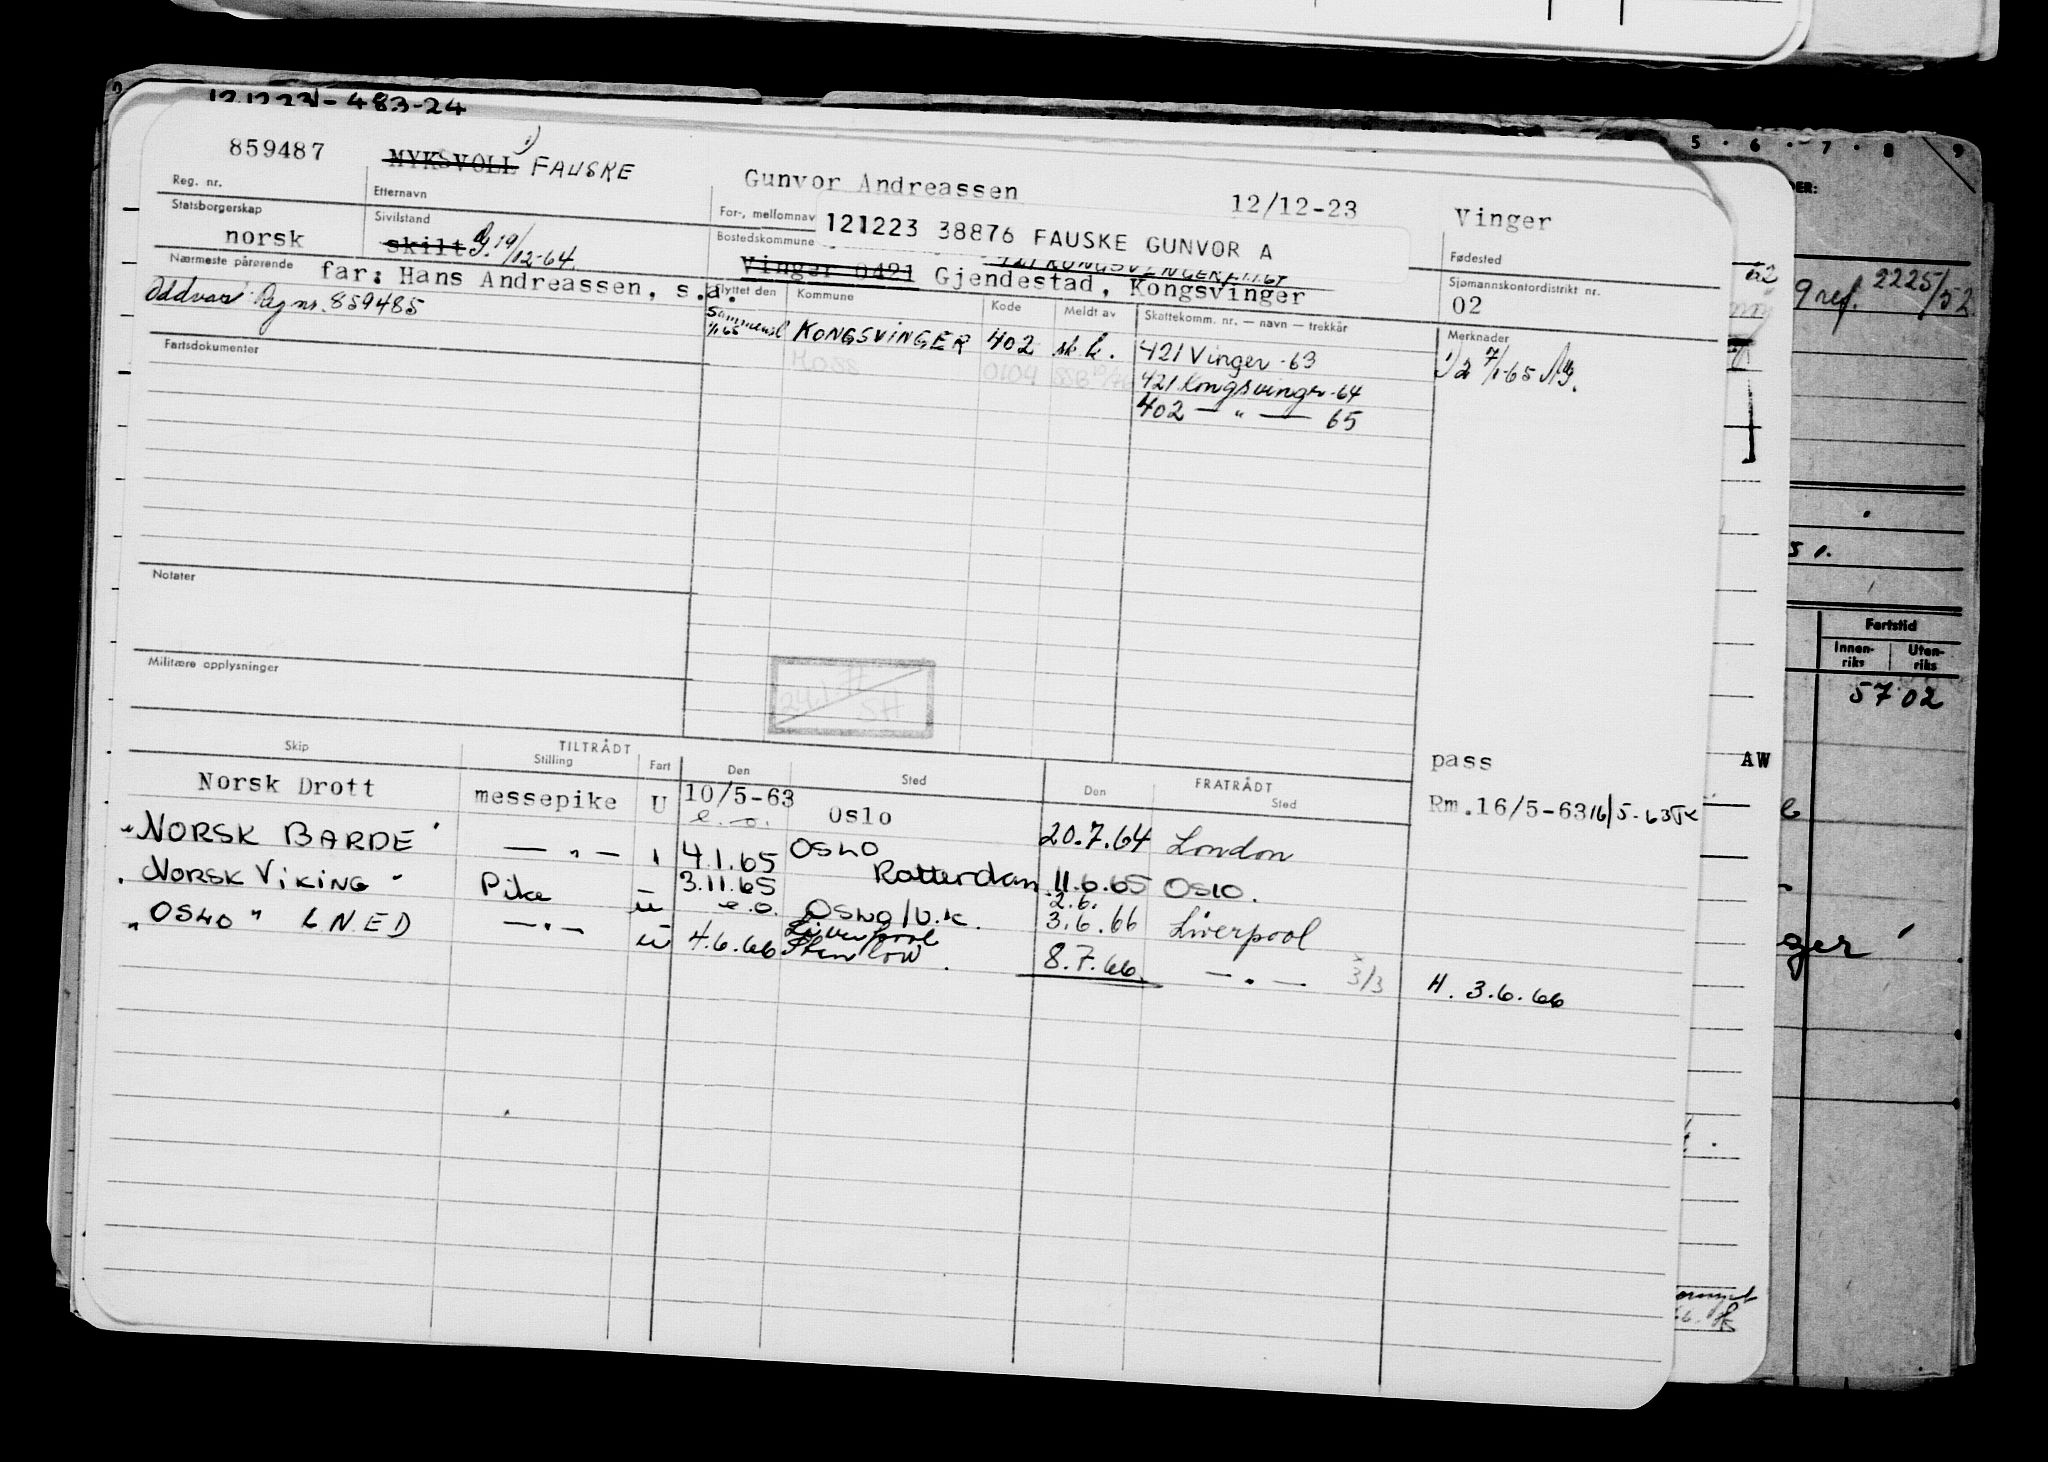 121223 - 483-24
859487 MYKSVOLL 1) FAUSKE Gunvor Andreassen 12/12-23 Vinger
Reg. nr. Etternavn For-, mellomnav Fødested
121223 38876 FAUSKE GUNVOR A
Statsborgerskap Sivilstand Bostedskommune Sjømannskontordistrikt nr.
norsk skilt g. 19/12-64. Vinger 0421 Gjendestad, Kongsvinger 02
421 KONGSVINGER 1/1.64
Nærmeste pårørende far: Hans Andreassen, s.a.
Oddvar Reg nr. 859485
Flyttet den Kommune Kode Meldt av Skattekomm. nr. — navn — trekkår Merknader
Sammensl 1/1 65 KONGSVINGER 402 sk.k. 421 Vinger -63 1) 2 7/1-65
MOSS 0104 421 Kongsvinger -64
402 — " — 65
Fartsdokumenter
Notater
Militære opplysninger
24.1.77
SH
TILTRÅDT FRATRÅDT
Skip Stilling Fart Den Sted Den Sted
pass
Norsk Drott messepike U 10/5-63 Oslo Rm.16/5-63 16/5-63
e.o.
"NORSK BARDE" — " — 4.1.65 OSLO 20.7.64 London
"NORSK VIKING" Pike 3.11.65 Rotterdam 11.6.65 OSLO.
u e.o. OSLO/U.K. 2.6.
"OSLO" LNED — " — u 4.6.66 Liverpool 3.6.66 Liverpool
Stanlow. 8.7.66. — " — 3/3 H. 3.6.66
9 ref. 2225/52
51.
Fartstid
Innen-riks Uten-riks
5702
AW
ger'